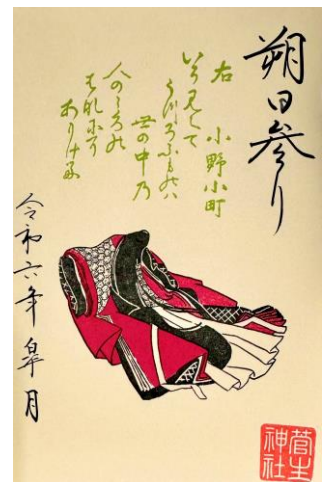 朔日参り
右 小野小町
いろ見えて
うつろふものハ
世の中乃
人のこゝろの
はなにそ
ありける
令和六年 皐月
菅生
神社